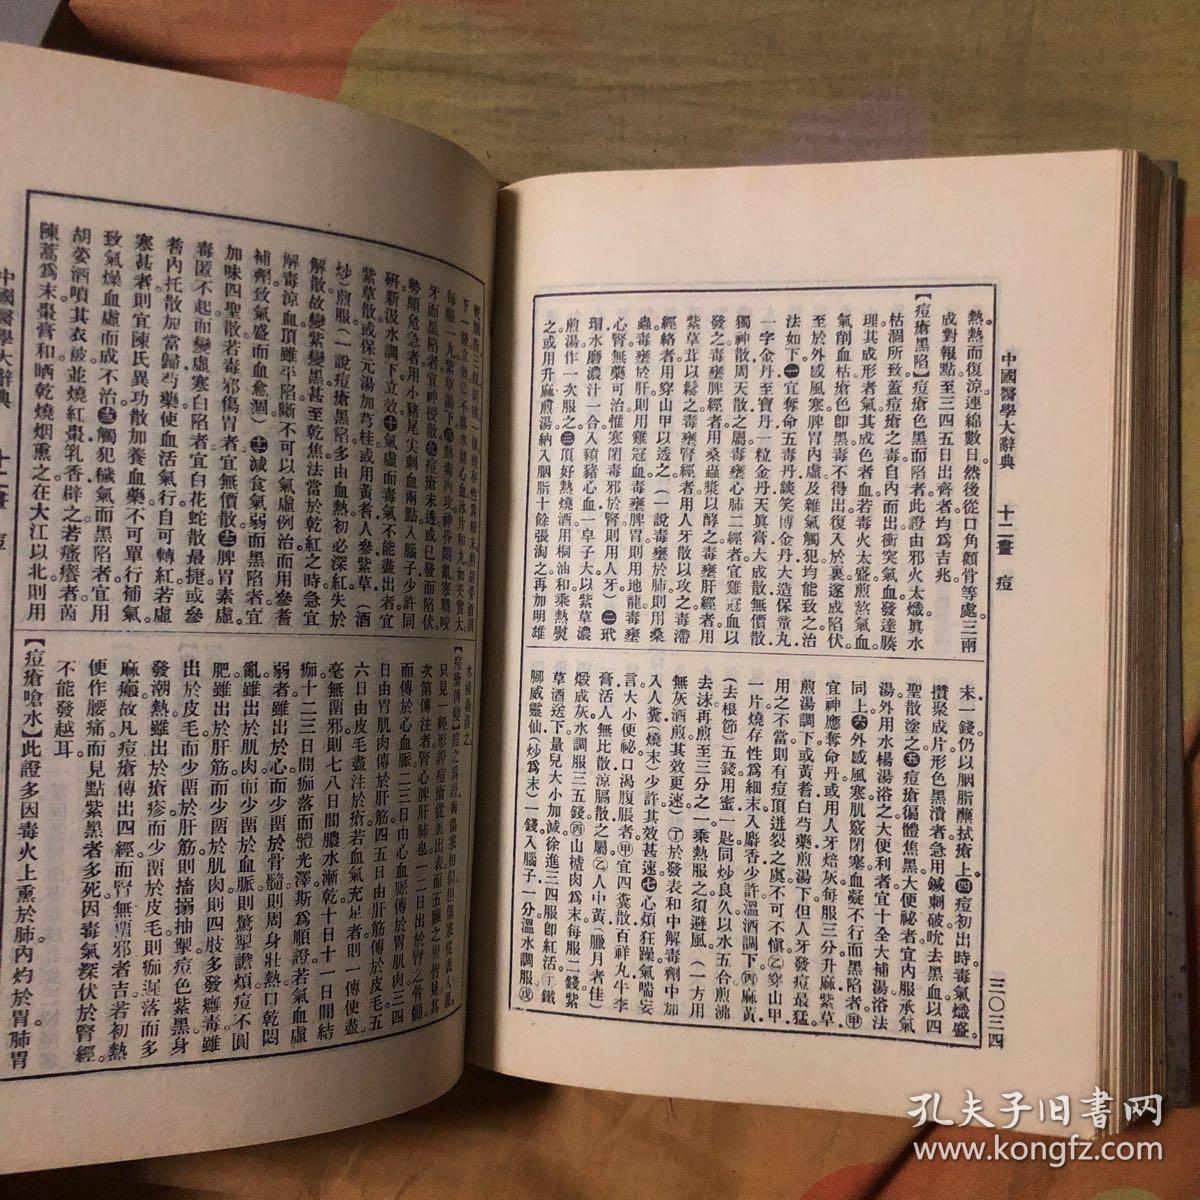 中國醫學大辭典　十二畫　痘
三〇三四
熱熱而復涼連綿數日然後從口角顴骨等處三兩
成對報點至三四五日出齊者均為吉兆
【痘瘡黑陷】痘瘡色黑而陷者此證由邪火太熾眞水
枯涸所致蓋痘瘡之毒自內而出衝突氣血發達腠
理其成形者氣其成色者血若毒火太盛煎熬氣血
氣削血枯痘色即黑毒不得出復入於裏遂成陷伏
至於外感風寒脾胃內虛及雜氣觸犯均能致之治
法如下㊀宜奪命五毒丹談笑博金丹大造保童丸
一字金丹至寶丹一粒金丹天眞膏大成散無價散
獨神散周天散之屬毒壅心肺二經者宜雞冠血以
發之毒壅脾經者用桑蟲漿以酵之毒壅肝經者用
紫草茸以鬆之毒壅腎經者用人牙散以攻之毒滯
經絡者用穿山甲以透之（一說毒壅於肺則用桑
蟲毒壅於肝則用雞冠血毒壅脾胃則用地龍毒壅
心腎無藥可治惟寒閉毒邪於腎則用人牙）㊁玳
瑁水磨濃汁一合入豬心血一皂子大以紫草濃
煎湯作一次服之㊂頂好熱燒酒用桐油和乘熱熨
之或用升麻煎湯納入胭脂十餘張淘之再加明雄
末一錢仍以胭脂蘸拭瘡上㊃痘初出時毒氣熾盛
攢聚成片形色黑潰者急用鍼刺破吮去黑血以四
聖散塗之㊄痘瘡徧體焦黑大便祕者宜內服承氣
湯外用水楊湯浴之大便利者宜十全大補湯浴法
同上㊅外感風寒肌竅閉塞血凝不行而黑陷者㊙
宜神應奪命丹或用人牙焙灰每服三分升麻紫草
煎湯調下或黃耆白芍藥煎湯下但人牙發痘最猛
用之不當則有痘頂迸裂之虞不可不愼㊁穿山甲
一片燒存性為細末入麝香少許溫酒調下㊂麻黃
（去根節）五錢用蜜一匙同炒良久以水五合煎沸
去沫再煎至三分之一乘熱服之須避風（一方用
無灰酒煎其效更速）㊃於發表和中解毒劑中加
入人糞（燒末）少許其效甚速㊆心煩狂躁氣喘妄
言大小便祕口渴腹脹者㊀宜四糞散百祥丸牛李
膏活人無比散涼膈散之屬㊁人中黃（臘月者佳）
煅成灰水調服三五錢㊂山楂肉為末每服二錢紫
草酒送下量兒大小加減徐進三四服即紅活㊃鐵
腳威靈仙（炒為末）一錢入腦子一分溫水調服㊄
中國醫學大辭典　十二畫　痘
每服一九紫草湯下㊇熱毒內攻神昏悶亂寒戰咬
牙而黑陷者宜神授散㊈痘瘡未透或已發而陷伏
勢頗危急者用小豬尾尖刺血兩點入腦子少許同
硏新汲水調下立效㊉氣虛而毒氣不能盡出者宜
紫草散或保元湯加芎桂或用黃耆人參紫草（酒
炒）煎服（一說痘瘡黑陷多由血熱初必深紅失於
解散故變紫變黑甚至乾焦法當於乾紅之時急宜
解毒涼血頂雖平陷斷不可以氣虛例治而用參耆
補劑致氣盛而血愈涸）㊉減食氣弱而黑陷者宜
加味四聖散若毒邪傷胃者宜無價散脾胃素虛
毒匿不起而變虛寒白陷者宜白花蛇散最捷或參
耆內托散加當歸芍藥使血活氣行自可轉紅若虛
寒甚者則宜陳氏異功散加養血藥不可單行補氣
致氣燥血虛而成不治觸犯穢氣而黑陷者宜用
胡荽酒噴其衣被並燒紅棗乳香辟之若瘙癢者茵
陳蒿為末棗膏和晒乾燒烟熏之在大江以北則用
水楊湯浴之
【痘瘡傳變】痘之為證與傷寒相似但傷寒從表入裏
只見一經形證痘瘡從裏出表而五臟之證皆見其
次第傳注者腎心脾肝肺也一二日出於腎之骨髓
而傳於心血脈二三日由心血脈傳於胃肌肉三四
日由胃肌肉傳於肝筋四五日由肝筋傳於皮毛五
六日由皮毛盡注於瘡若血氣充足者則一傳便盡
毫無留邪則七八日間膿水漸乾十日十一日間結
痂十二三日間痂落而體光澤斯為順證若氣血虛
弱者雖出於心而少留於骨髓則周身壯熱口乾悶
亂雖出於肌肉而少留於血脈則驚掣譫煩痘不圓
肥雖出於肝筋而少留於肌肉則四肢多發癰毒雖
出於皮毛而少留於肝筋則搐搦抽掣痘色紫黑身
發潮熱雖出於瘡疹而少留於皮毛則痂遲落而多
麻瘢故凡痘瘡傳出四經而腎無留邪者吉若初熱
便作腰痛而見點紫黑者多死因毒氣深伏於腎經
不能發越耳
【痘瘡嗆水】此證多因毒火上熏於肺內灼於胃肺胃
孔夫子旧書网
www.kongfz.com